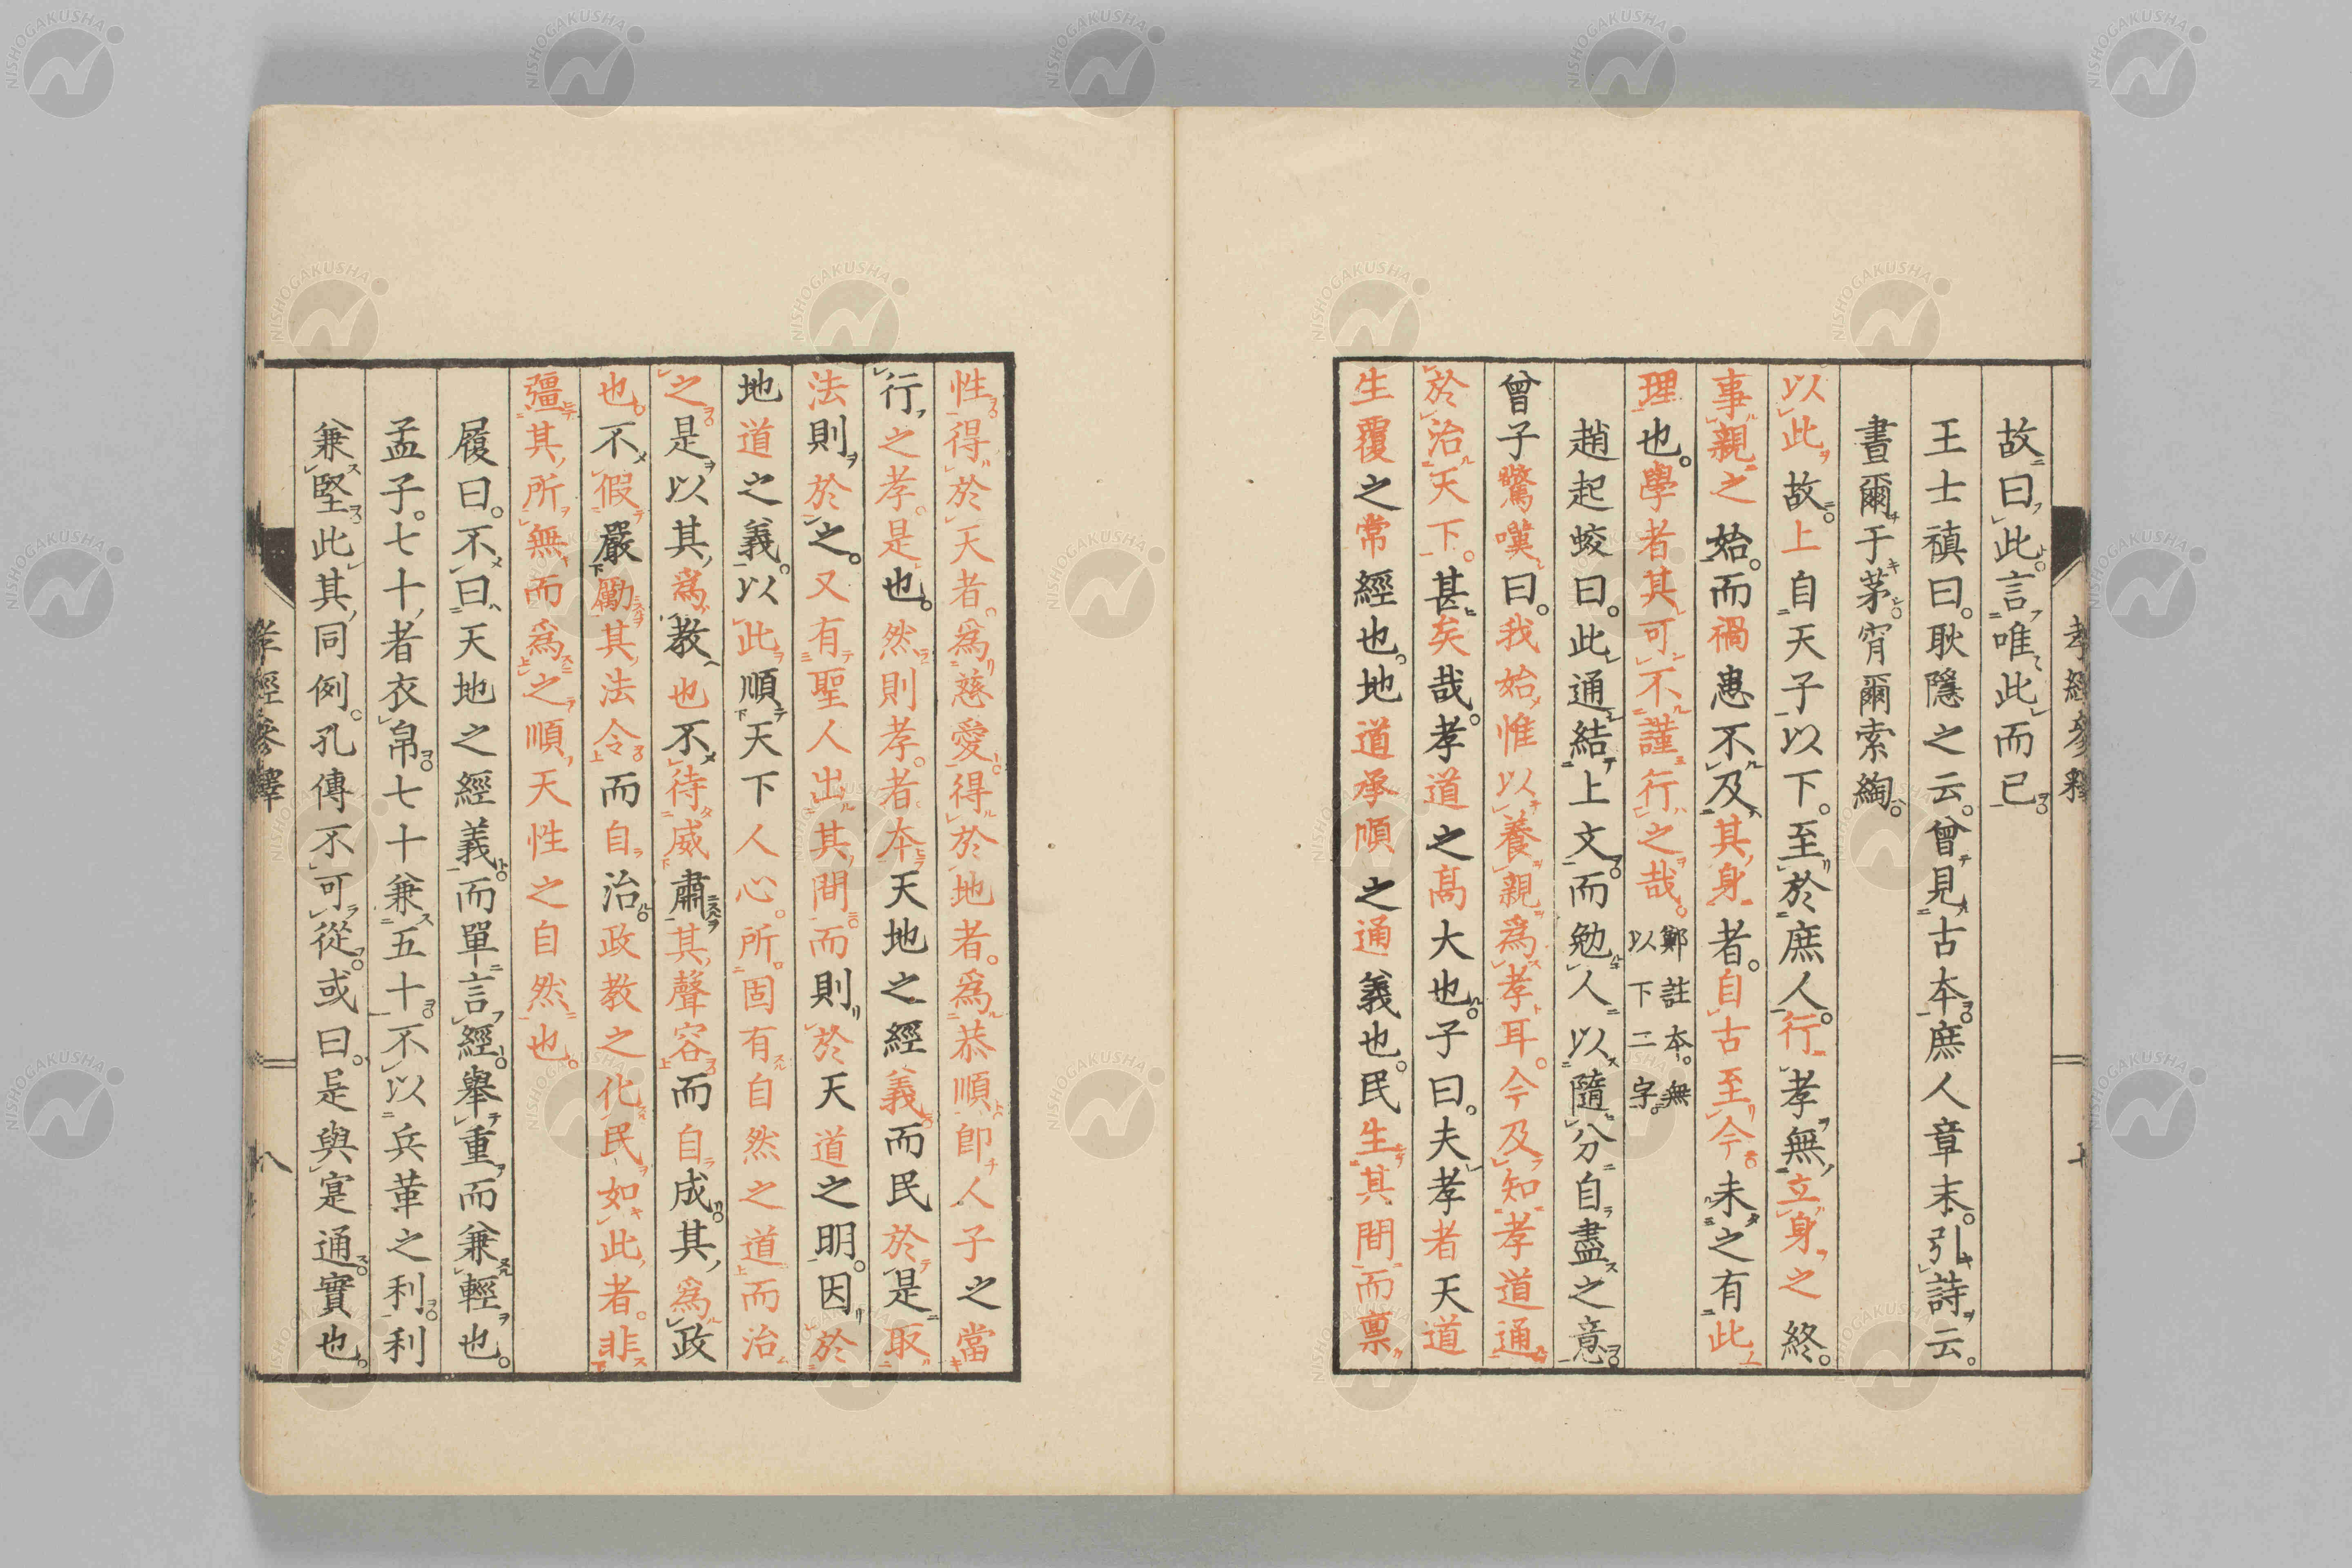 故曰此言唯此而已
王士禛曰。耿隱之云。曾見古本。庶人章末。引詩云。
晝爾于茅宵爾索綯。
以此故。上自天子以下。至於庶人。行孝無立身之終。
事親之始。而禍患不及其身者。自古至今未之有此
理也。學者其可不謹行之哉。鄭註本。無以下二字。
趙起蛟曰。此通結上文而勉人以隨分自盡之意
曾子驚嘆曰。我始惟以養親爲孝耳。今及知孝道通
於治天下。甚矣哉。孝道之高大也。子曰。夫孝者天道
生覆之常經也。地道承順之通義也。民生其間而禀
性得於天者。爲慈愛。得於地者。爲恭順即人子之當
行之孝。是也。然則孝者本天地之經義而民於是取
法則於之。又有聖人出其間而則於天道之明。因於
地道之義。以此順天下人心。所固有自然之道而治
之是以其爲教也不待威肅其聲容而自成。其爲政
也不假嚴勵其法令而自治。政教之化民如此者。非
彊其所無而爲之順天性之自然也。
履曰。不曰天地之經義而單言經。舉重而兼輕也。
孟子。七十者衣帛七十兼五十不以兵革之利利
兼堅此其同例。孔傳不可從。或曰。是與寔通實也。
孝經參釋
八
孝經參釋